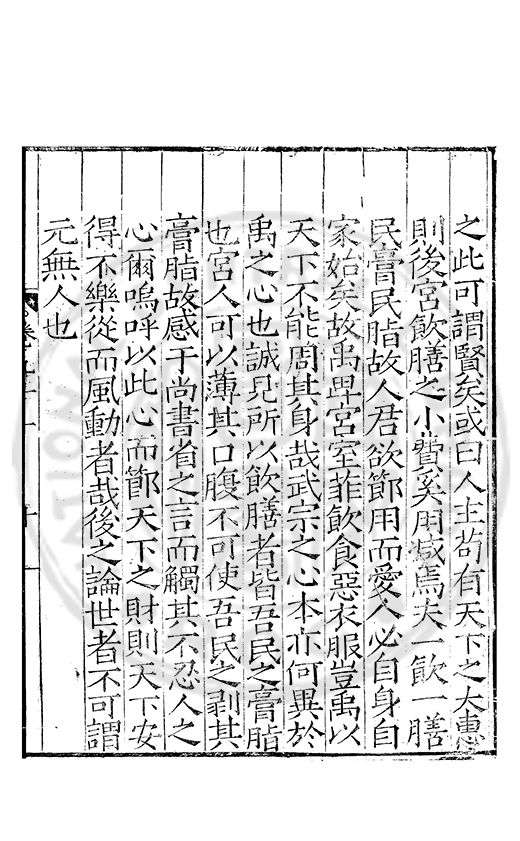 之此可謂賢矣或曰人主苟有天下之大惠
則後宮飲膳之小費奚用烕焉夫一飲一膳
民膏民脂故人君欲節用而愛人必自身自
家始矣故禹卑宮室菲飲食惡衣服豈禹以
天下不能周其身哉武宗之心本亦何異於
禹之心也誠見所以飲膳者皆吾民之膏脂
也宮人可以薄其口腹不可使吾民之剥其
膏脂故感于尚書省之言而觸其不忍人之
心爾嗚呼以此心而節天下之財則天下安
得不樂從而風動者哉後之論世者不可謂
元無人也